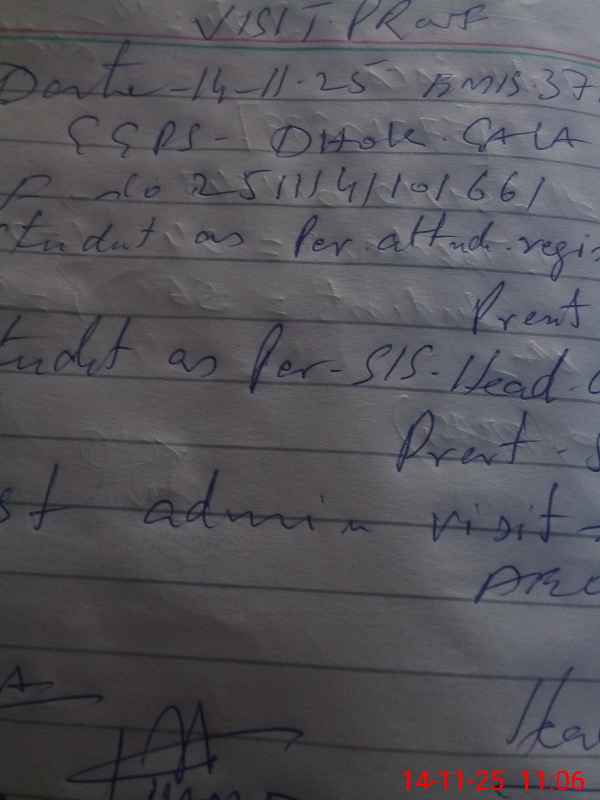 VISIT PRoof
Date - 14-11-25 EMIS.37
GGPS - DHOK. GALA
No 2511141101661
Student as Per. attnd. regis
Prent
tudnt as Per-SIS-Head.
Prent - S
st admin visit -
AEO
A
Hea
14-11-25 11:06